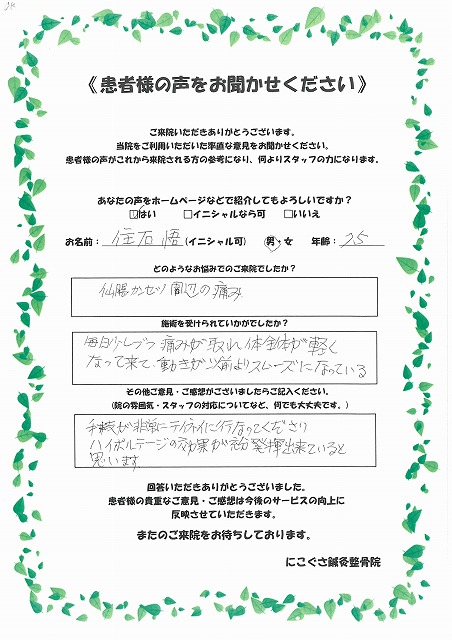 《患者様の声をお聞かせください》
ご来院いただきありがとうございます。
当院をご利用いただいた率直な意見をお聞かせください。
患者様の声がこれから来院される方の参考になり、何よりスタッフの力になります。
あなたの声をホームページなどで紹介してもよろしいですか？
☑はい □イニシャルなら可 □いいえ
お名前： 住石 悟 (イニシャル可) 男・女 年齢： 25
どのようなお悩みでのご来院でしたか？
仙腸カンセツ周辺の痛み
施術を受けられていかがでしたか？
毎日少しづつ痛みが取れ、体全体が軽く
なって来て、動きが以前よりスムーズになっている
その他ご意見・ご感想がございましたらご記入ください。
（院の雰囲気・スタッフの対応についてなど、何でも大丈夫です。）
手技が非常にテイネイに行なってください
ハイボルテージの効果が充分発揮出来ていると
思います
回答いただきありがとうございました。
患者様の貴重なご意見・ご感想は今後のサービスの向上に
反映させていただきます。
またのご来院をお待ちしております。
にこぐさ鍼灸整骨院